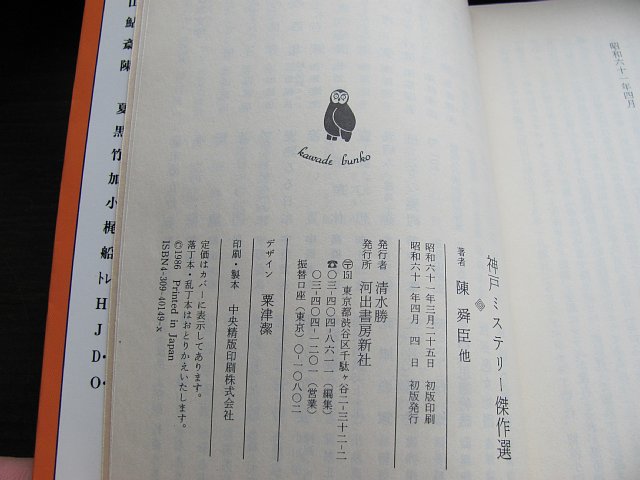 昭和六十一年四月
kawade bunko
神戸ミステリー傑作選
著者 陳舜臣 他
昭和六十一年三月二十五日 初版印刷
昭和六十一年四月 四 日 初版発行
発行者 清水勝
発行所 河出書房新社
〒151 東京都渋谷区千駄ヶ谷二-三十二-二
☎〇三-四〇四-八六一一(編集)
〇三-四〇四-一二〇一(営業)
振替口座(東京)〇-一〇八〇二
デザイン 粟津潔
印刷・製本 中央精版印刷株式会社
定価はカバーに表示してあります。
落丁本・乱丁本はおとりかえいたします。
©1986 Printed in Japan
ISBN4-309-40149-x
鮎
斎
陳
夏
黒
竹
加
小
梶
船
トレ
H
J
D・
O・